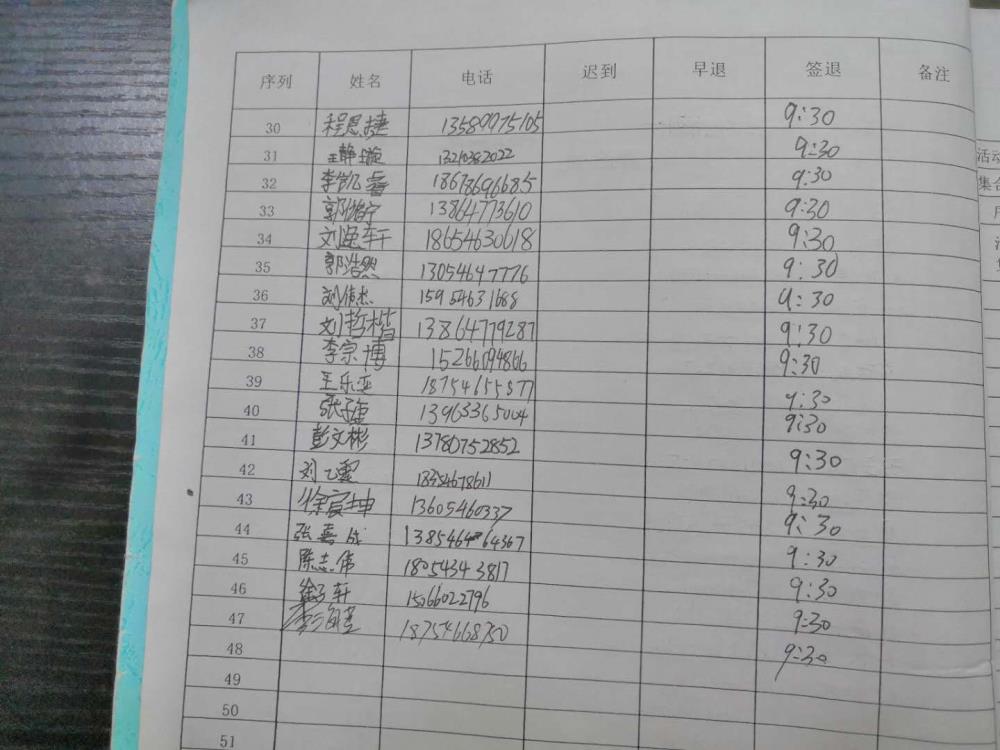 序列 姓名 电话 迟到 早退 签退 备注
30 程恩捷 13589975105 9:30
31 王静璇 13210382022 9:30
32 李凯睿 18678696685 9:30
33 郭 宁 13864773610 9:30
34 刘 轩 18654630618 9:30
35 郭浩然 13054647776 9:30
36 刘伟杰 15954631688 9:30
37 刘哲楷 13864779287 9:30
38 李宗博 15266094866 9:30
39 王乐亚 18754655877 9:30
40 张 13963365004 9:30
41 彭文彬 13780752852 9:30
42 刘 9:30
43 徐 坤 13605460337 9:30
44 张嘉成 9:30
45 陈志伟 18054343817 9:30
46 徐子轩 15066022796 9:30
47 李 18754668750 9:30
48
49
50
51
活动
集合